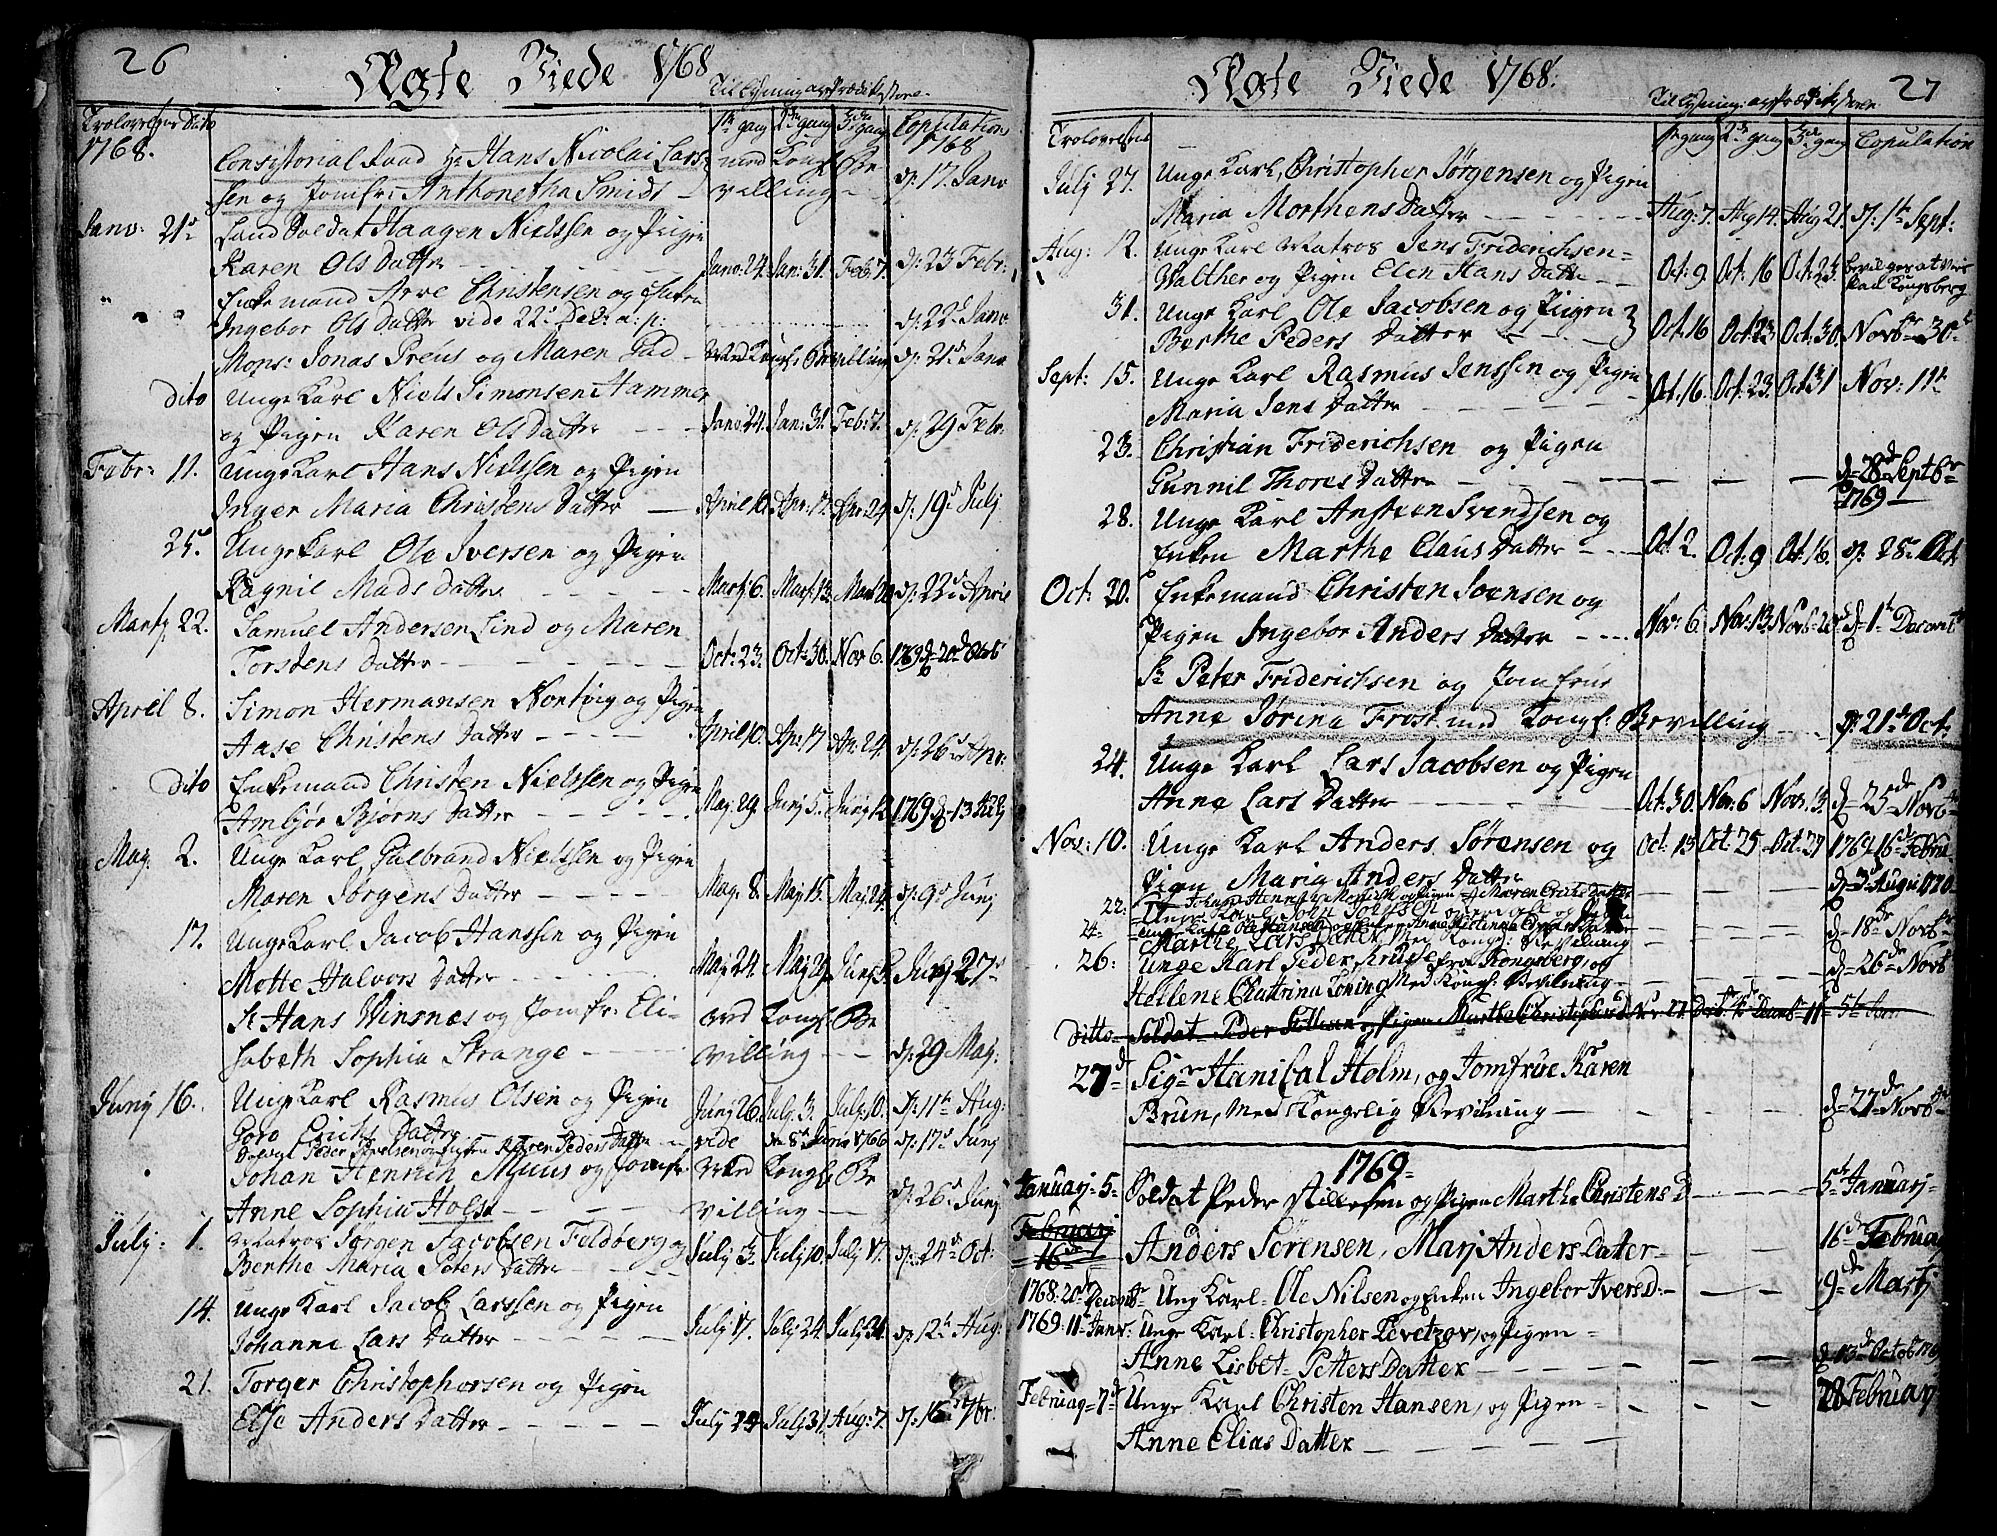 26
Ægte Viede 1768
Tillysning af Prædikestolen
Trolovelses Dato 1ste gang 2den gang 3die gang Copulation
1768. 1768
Consistorial Raad Hr Hans Nicolai Lars- med Kongl: Be
sen og Jomfr: Anthonetha Smidt villing d: 17. Janv
Janv: 21d Land Soldat Haagen Nielssen og Pigen
Karen Ols Datter Janv: 24. Jan: 31. Feb: 7. d: 23 Febr:
Enkemand Arve Christensen og Enken
Ingebor Ols Datter vide 22d Dec: a: p: d: 22d Janv
Mons: Jonas Preus og Maren Gad Med Kongl: Bevilling d: 21d Janv
dito Unge Karl Niels Simonsen Hammer
og Pigen Karen Ols Datter Janv: 24. Jan: 31. Feb: 7. d: 29 Febr:
Febr: 11. Unge Karl Hans Nielssen og Pigen
Inger Maria Christens Datter April 10. Apr: 17. Apr 24. d: 19d Julj
25d Unge Karl Ole Iversen og Pigen
Ragnil Mads Datter Martj 6. Mart: 13. Mart 20 d: 22d April
Martj 22. Samuel Andersen Lind og Maren
Torstens Datter Oct: 23. Oct: 30. Nov 6. 1769 d 20d Octb
April 8. Simon Hermansen Nortvig og Pigen
Aase Christens Datter April 10. Ap: 17 Ap: 24. d: 26d Apr:
Dito Enkemand Christen Nielssen og Pigen
Ambjør Bjørns Datter Maj 29. Junj 5. Junj 12. 1769 d 13 Julj
Maj. 2. Unge Karl Gulbrand Nielssen og Pigen
Maren Jørgens Datter Maj. 8. Maj 15. Maj 24. d: 9d Junj
17. Unge Karl Jacob Hanssen og Pigen
Mette Halvors Datter Maj 24. Maj 29. Junj 5. Junj 27d
Sr Hans Winsnes og Jomfr: Eli- Med Kongl: Be
sabeth Sophia Strange villing d: 29 Maj:
Junj 16. Unge Karl Rasmus Olsen og Pigen Junj 26. Julj. 3. Julj: 10. d: 11t Aug:
Goro Erichs Datter vide den 8d Janv 1766 d: 17d Junj
Peder og Enken Karen Peders Datter
Johan Henrich Muus og Jomfr: Med Kongl: Be
Anne Sophia Holst villing d: 26d Junj
Julij: 1. Matros Jørgen Jacobsen Feldberg og
Berthe Maria Peters Datter Julj 3. Julj 10. Julj 17. d: 24d Oct:
14. Unge Karl Jacob Larssen og Pigen
Johanne Lars Datter Julj 17. Julj 24. Julj 31. d: 12t Aug:
21. Torger Christophersen og Pigen
Else Anders Datter Julj 24 Julj 31. Aug: 7. d: 16 7br:
27
Ægte Viede 1768.
Tillysning: af Prædikestolen
Trolovelses 1t gang 2d gang 3d gang Copulation
Julj 27. Unge Karl, Christopher Jørgensen og Pigen
Maria Morthens Datter Aug: 7. Aug 14. Aug 21. d: 1t Sept.
Aug: 12. Unge Karl Matros Jens Friderichsen
Walther og Pigen Elen Hans Datter Oct: 9. Oct: 16 Oct: 23. bevilges at vies ved Kongsberg
31. Unge Karl Ole Jacobsen og Pigen
Berthe Peders Datter Oct: 16 Oct: 23 Oct: 30. Novbr 30t
Sept: 15. Unge Karl Rasmus Jenssen og Pigen
Maria Jens Datter Oct: 16. Oct: 23. Oct 31 Nov: 11t
23. Christian Friderichsen og Pigen
Gunnil Thores Datter d 28de Septbr 1769
28. Unge Karl Ansteen Svendsen og
Enken Marthe Claus Datter Oct 2. Oct: 9 Oct: 16. d: 28 Oct
Oct: 20. Enkemand Christen Svensen og
Pigen Ingebor Anders Datter Nov: 6. Nov: 13. Novb 20 d 1t Decembr
Sr Peter Friderichsen og Jomfrue
Anne Jørina Frost med Kongl: Bevilling d: 21d Oct:
24. Unge Karl Lars Jacobsen og Pigen
Anne Lars Datter Oct: 30. Nov: 6 Nov: 13. d 25de Novb
Nov: 10. Unge Karl Anders Sørensen og Oct. 13 Oct: 25 Oct. 27 1769 16d Febru
Pigen Maria Anders Datter
22. d 3d Augu 1770
Marthe Lars Datter Med Kongl: Bevilning d 18de Novbr
26: Unge Karl Peder Kruse fra Kongsberg, og d 26de Novb
Hellene Chattrina Løning Med Kongl: Bevilning
Ditto Soldat Peder Stillesen og Pigen Marthe Christophers D
27d Sigr Hanibal Holm, og Jomfrue Karen
Brun, Med Kongelig Bevilning d 27de Novb
1769
Januarj 5 Soldat Peder Stillesen og Pigen Marthe Christens D 5te Januarj
Februarj 16de Anders Sørensen, Marj Anders Dater 16de Februarj
1768: 20d Decembr Ung Karl Ole Nilsen og Enken Ingebor Ivers D: 9de Martj
1769: 11t Janv: Unge Karl Christopher Levetzov, og Pigen
Anne Lisbet Petters Datter d 13de Octob 1769
Februaj 7d Unge Karl Christen Hansen, og Pigen Februarj
Anne Elias Datter